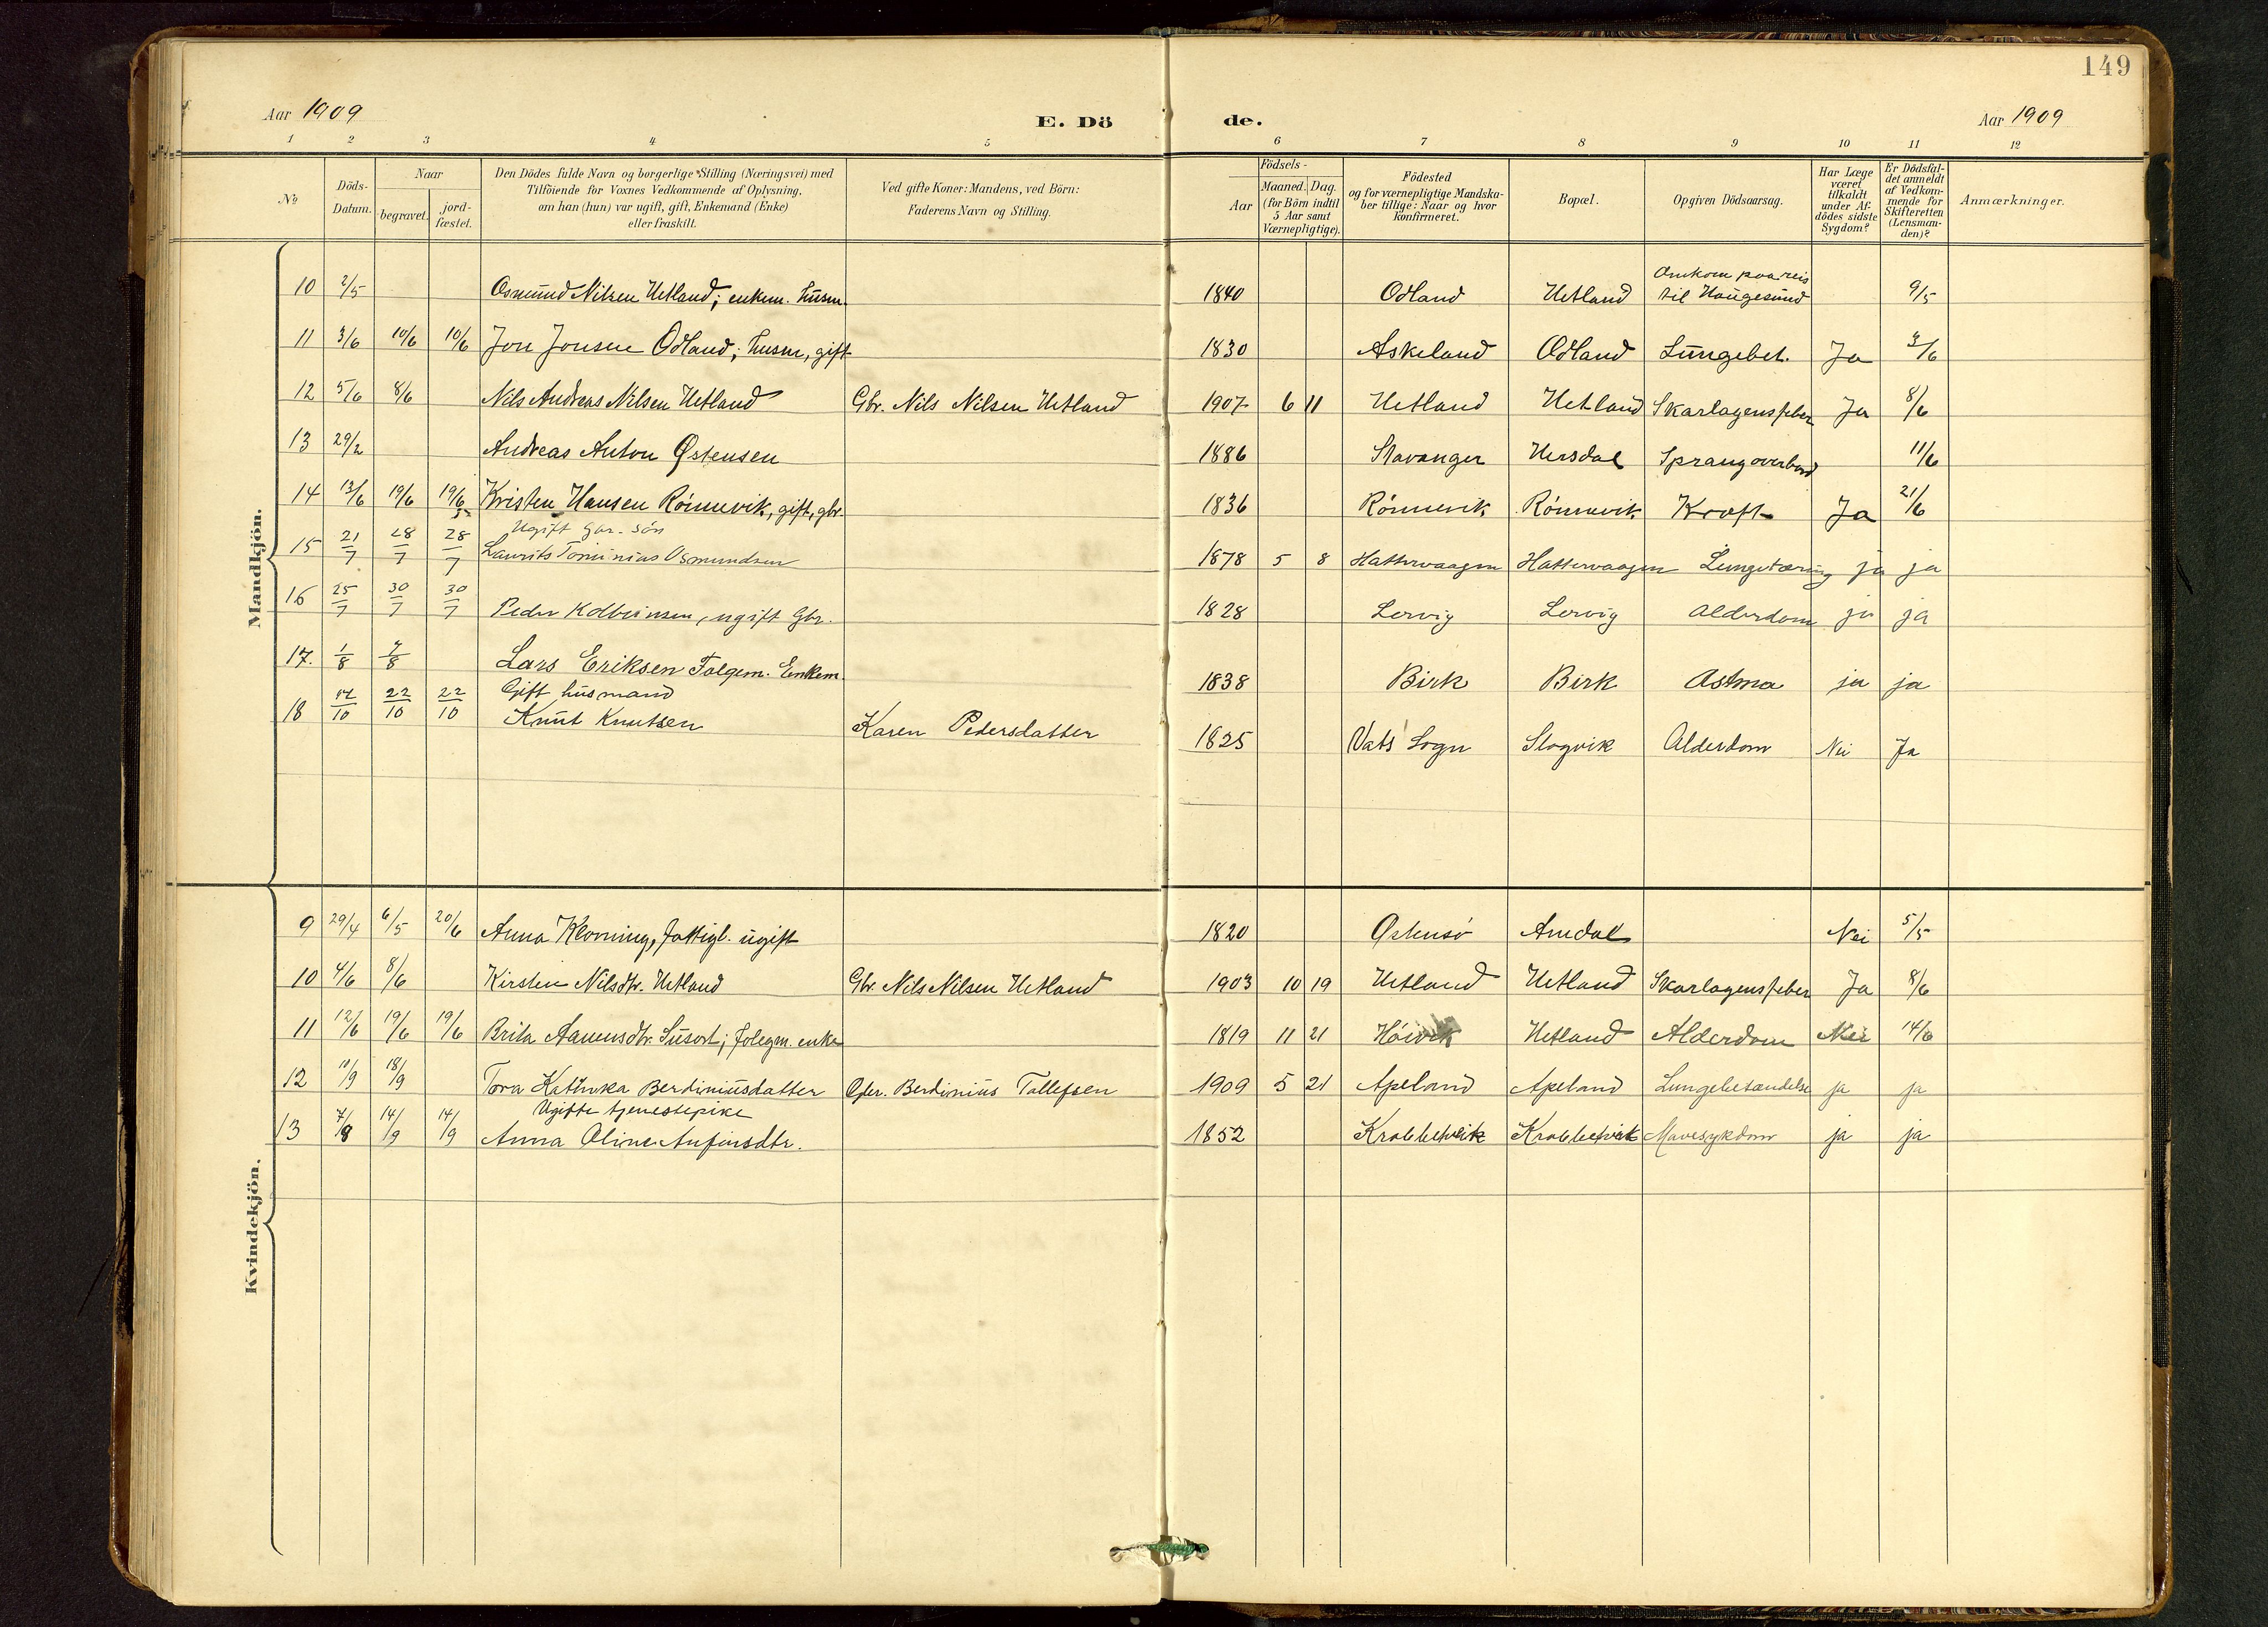 149
Aar 1909
E. Dö
de.
Aar 1909
1 2 3 4 5 6 7 8 9 10 11 12
№
Döds-Datum.
Naar
begravet.
jord-fæstet.
Den Dödes fulde Navn og borgerlige Stilling (Næringsvei) med
Tilföiende for Voxnes Vedkommende af Oplysning,
om han (hun) var ugift, gift, Enkemand (Enke)
eller fraskilt.
Ved gifte Koner: Mandens, ved Börn:
Faderens Navn og Stilling.
Födsels-
Aar
Maaned. Dag.
(for Börn indtil
5 Aar samt
Værnepligtige).
Födested
og for værnepligtige Mandska-
ber tillige: Naar og hvor
konfirmeret.
Bopæl.
Opgiven Dödsaarsag.
Har Læge
været
tilkaldt
under Af-
dödes sidste
Sygdom?
Er Dödsfal-
det anmeldt
af Vedkom-
mende for
Skifteretten
(Lensman-
den)?
Anmærkninger.
Mandkjön.
10 2/5 Osmund Nilsen Hetland; enkem. husm. 1840 Odland Hetland Omkom paa reis til Haugesund 9/5
11 3/6 10/6 10/6 Jon Jonsen Odland; husm, gift 1830 Askeland Odland Lungebet. Ja 3/6
12 5/6 8/6 Nils Andreas Nilsen Hetland Gbr. Nils Nilsen Hetland 1907 6 11 Hetland Hetland Skarlagensfeber Ja 8/6
13 29/2 Andreas Anton Østensen 1886 Stavanger Hersdal Sprang overbord 11/6
14 13/6 19/6 19/6 Kristen Hansen Rönnevik, gift, gbr. 1836 Rönnevik Rönnevik Kræft Ja 21/6
Ugift Gbr. sön
15 21/7 28/7 28/7 Laurits Tominius Osmundsen 1878 5 8 Hattervaagen Hattervaagen Lungetæring ja ja
16 25/7 30/7 30/7 Peder Kolbeinsen, ugift Gbr. 1828 Lervig Lervig Alderdom ja ja
17. 1/8 7/8 Lars Eriksen Folgem. Enkem. 1838 Birk Birk Astma ja ja
Gift husmand
18 14/10 22/10 22/10 Knut Knutsen Karen Pedersdatter 1825 Vats Sogn Slogvik Alderdom Nei Ja
Kvindekjön.
9 29/4 6/5 20/6 Anna Klovning, fattigl. ugift 1820 Østensö Amdal Nei 5/5
10 4/6 8/6 Kirsten Nilsdtr. Hetland Gbr. Nils Nilsen Hetland 1903 10 19 Hetland Hetland Skarlagensfeber Ja 8/6
11 12/6 19/6 19/6 Brita Aanensdtr. Susort; folegm. enke 1819 11 21 Höivik Hetland Alderdom Nei 14/6
12 10/9 18/9 Tora Kathrika Berdiniusdatter Gbr. Berdinius Tollefsen 1909 5 21 Apeland Apeland Lungebetændelse ja ja
Ugifte tjenestepike
13 7/9 14/9 14/9 Anna Oline Anfinsdtr. 1852 Krabbetveit Krabbetveit Mavesykdom ja ja